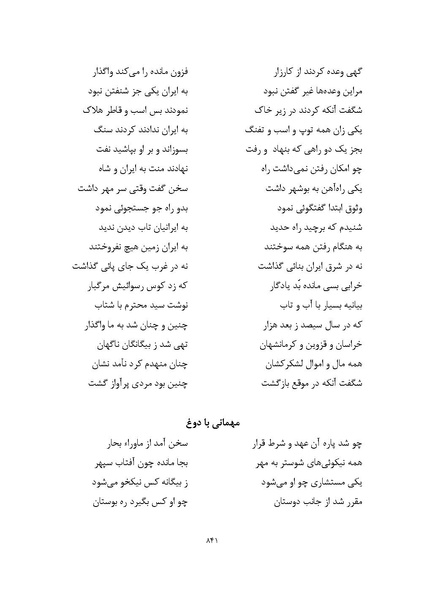 گهی وعده کردند از کارزار فزون مانده را می‌کند واگذار
مراین وعده‌ها غیر گفتن نبود به ایران یکی جز شنفتن نبود
شگفت آنکه کردند در زیر خاک نمودند بس اسب و قاطر هلاک
یکی زان همه توپ و اسب و تفنگ به ایران ندادند کردند سنگ
بجز یک دو راهی که بنهاد و رفت بسوزاند و بر او بپاشید نفت
چو امکان رفتن نمی‌داشت راه نهادند منت به ایران و شاه
یکی راه‌آهن به بوشهر داشت سخن گفت وقتی سر مهر داشت
وثوق ابتدا گفتگوئی نمود بدو راه جو جستجوئی نمود
شنیدم که برچید راه حدید به ایرانیان تاب دیدن ندید
به هنگام رفتن همه سوختند به ایران زمین هیچ نفروختند
نه در شرق ایران بنائی گذاشت نه در غرب یک جای پائی گذاشت
خرابی بسی مانده بُد یادگار که زد کوس رسوائیش مرگبار
بیانیه بسیار با آب و تاب نوشت سید محترم با شتاب
که در سال سیصد ز بعد هزار چنین و چنان شد به ما واگذار
خراسان و قزوین و کرمانشهان تهی شد ز بیگانگان ناگهان
همه مال و اموال لشکرکشان چنان منهدم کرد نآمد نشان
شگفت آنکه در موقع بازگشت چنین بود مردی پرآواز گشت
مهمانی با دوغ
چو شد پاره آن عهد و شرط قرار سخن آمد از ماوراء بحار
همه نیکوئی‌های شوستر به مهر بجا مانده چون آفتاب سپهر
یکی مستشاری چو او می‌شود ز بیگانه کس نیکخو می‌شود
مقرر شد از جانب دوستان چو او کس بگیرد ره بوستان
۸۴۱